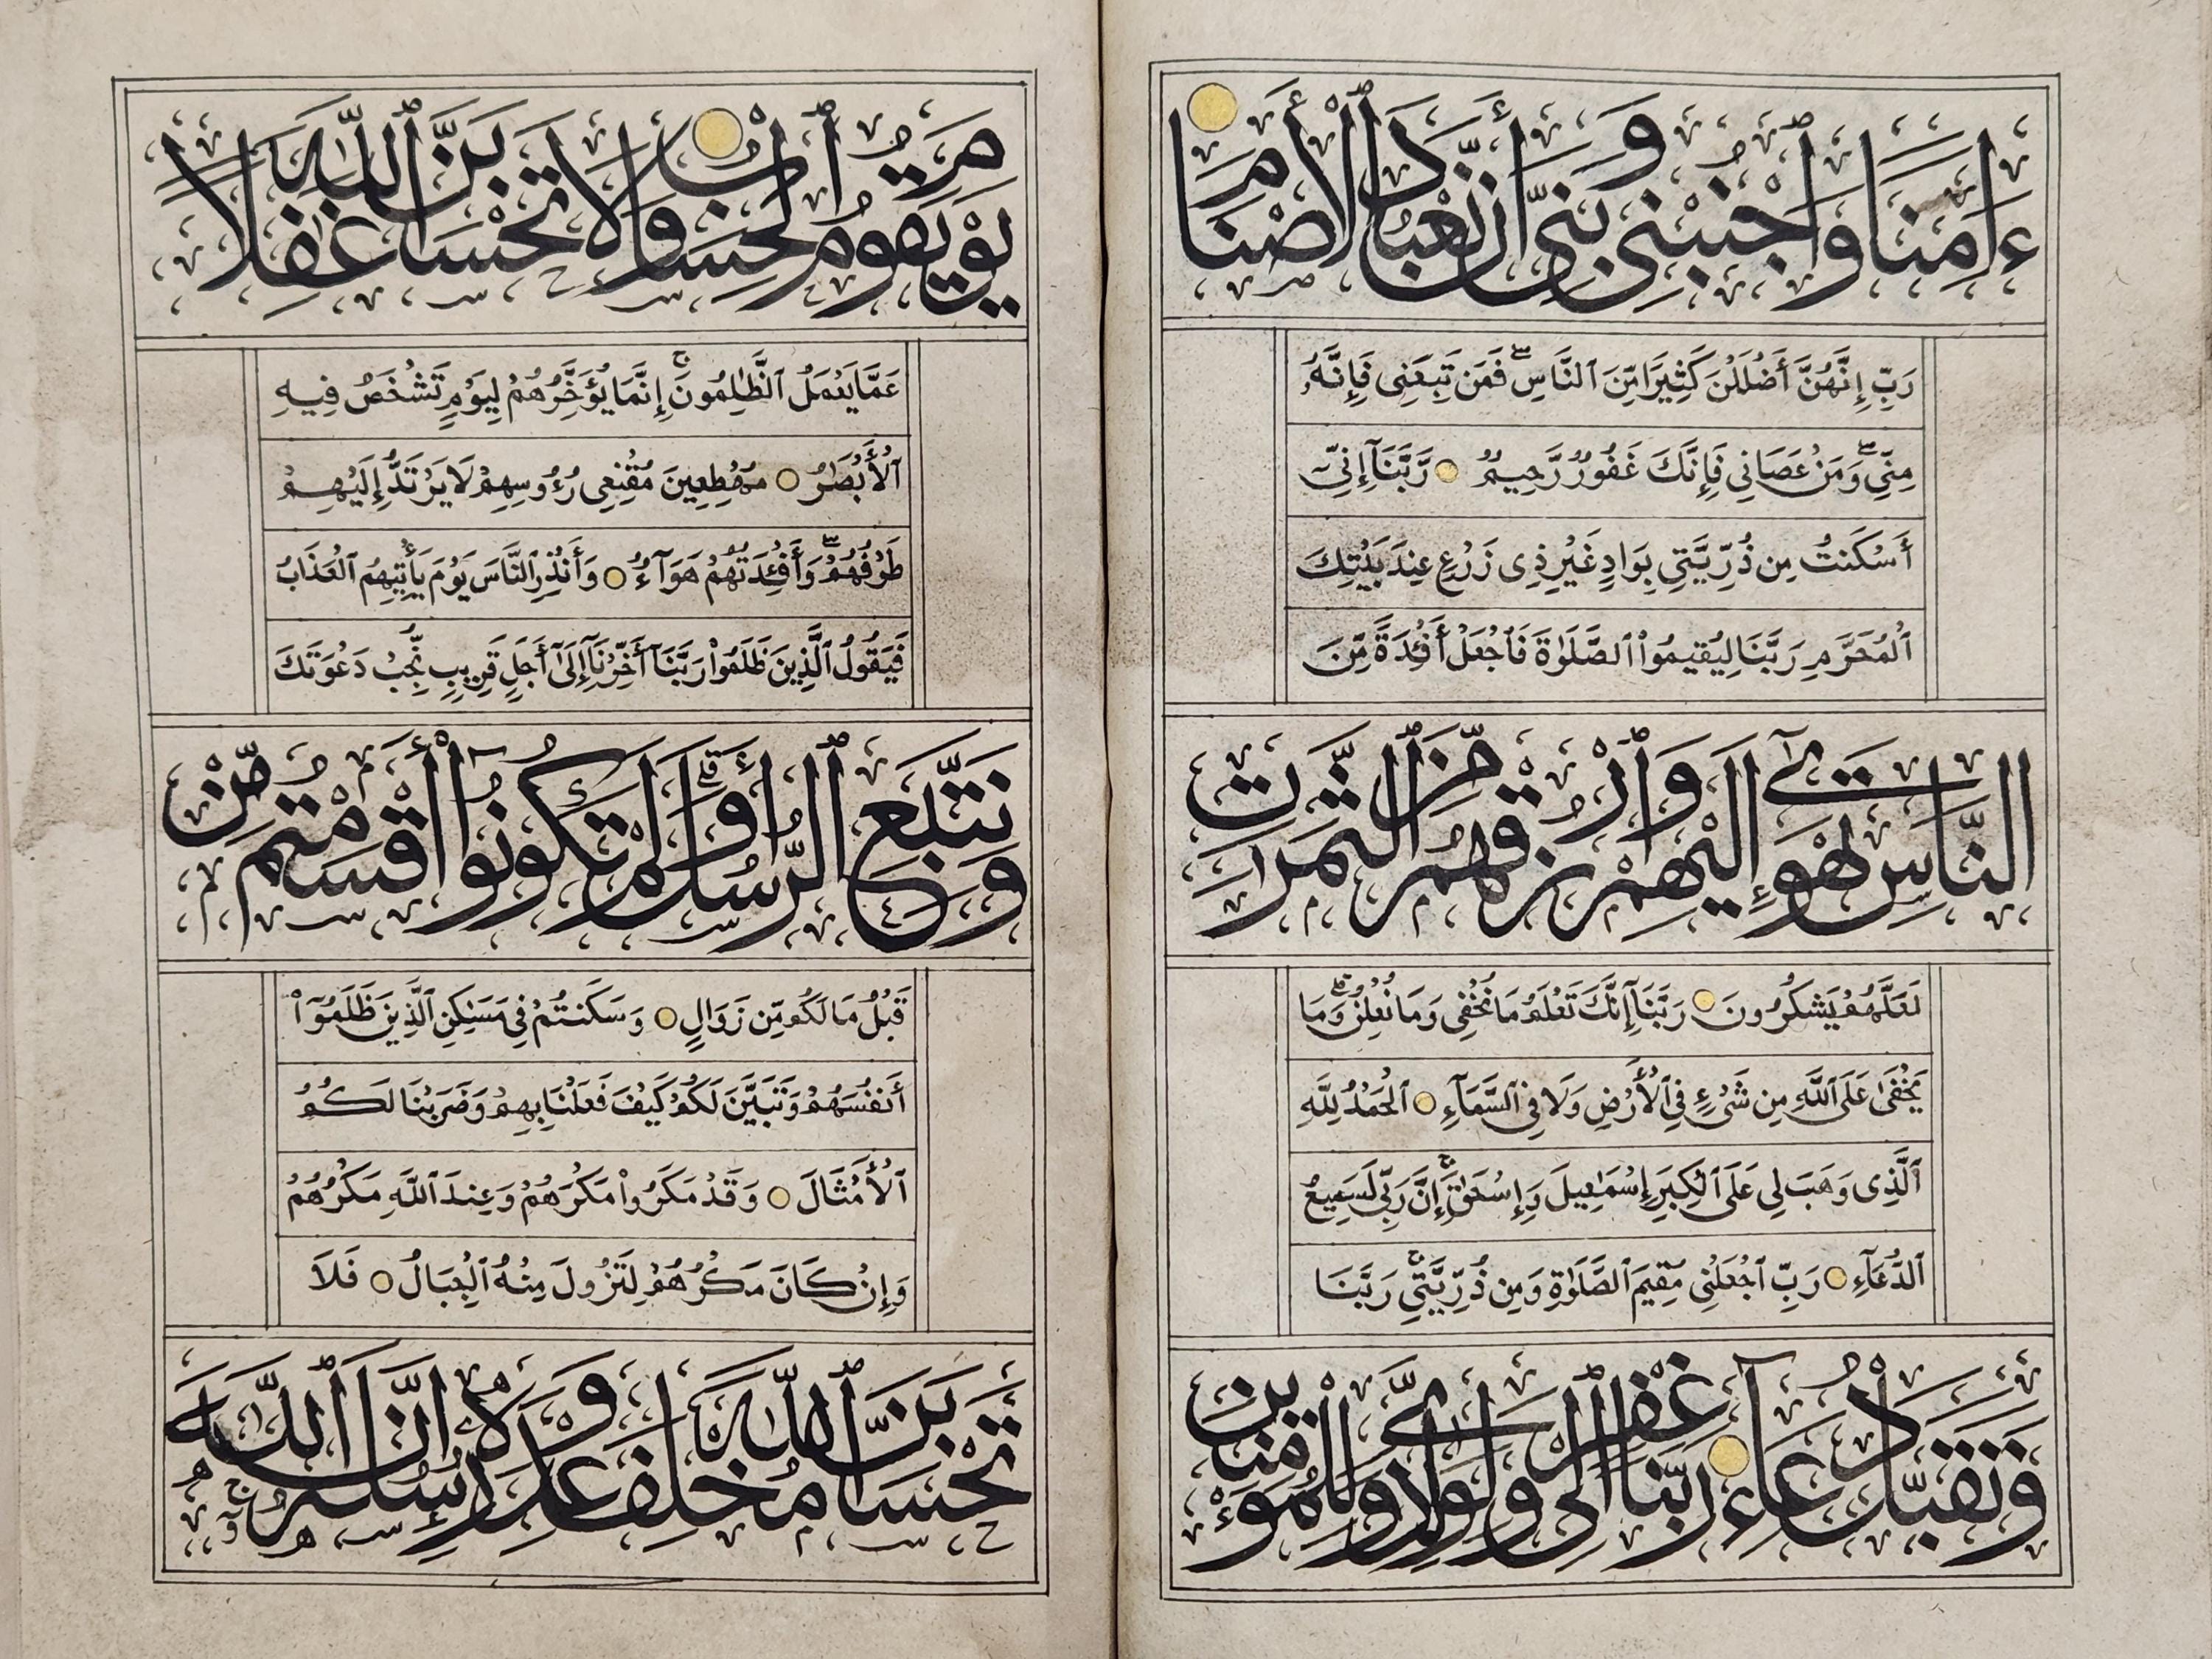 ءَامِنًا وَٱجْنُبْنِى وَبَنِىَّ أَن نَّعْبُدَ ٱلْأَصْنَامَ
رَبِّ إِنَّهُنَّ أَضْلَلْنَ كَثِيرًا مِّنَ ٱلنَّاسِ ۖ فَمَن تَبِعَنِى فَإِنَّهُۥ
مِنِّى ۖ وَمَنْ عَصَانِى فَإِنَّكَ غَفُورٌ رَّحِيمٌ رَّبَّنَآ إِنِّىٓ
أَسْكَنتُ مِن ذُرِّيَّتِى بِوَادٍ غَيْرِ ذِى زَرْعٍ عِندَ بَيْتِكَ
ٱلْمُحَرَّمِ رَبَّنَا لِيُقِيمُوا۟ ٱلصَّلَوٰةَ فَٱجْعَلْ أَفْـِٔدَةً مِّنَ
ٱلنَّاسِ تَهْوِىٓ إِلَيْهِمْ وَٱرْزُقْهُم مِّنَ ٱلثَّمَرَٰتِ
لَعَلَّهُمْ يَشْكُرُونَ رَبَّنَآ إِنَّكَ تَعْلَمُ مَا نُخْفِى وَمَا نُعْلِنُ ۗ وَمَا
يَخْفَىٰ عَلَى ٱللَّهِ مِن شَىْءٍ فِى ٱلْأَرْضِ وَلَا فِى ٱلسَّمَآءِ ٱلْحَمْدُ لِلَّهِ
ٱلَّذِى وَهَبَ لِى عَلَى ٱلْكِبَرِ إِسْمَٰعِيلَ وَإِسْحَٰقَ ۚ إِنَّ رَبِّى لَسَمِيعُ
ٱلدُّعَآءِ رَبِّ ٱجْعَلْنِى مُقِيمَ ٱلصَّلَوٰةِ وَمِن ذُرِّيَّتِى ۚ رَبَّنَا
وَتَقَبَّلْ دُعَآءِ رَبَّنَا ٱغْفِرْ لِى وَلِوَٰلِدَىَّ وَلِلْمُؤْمِنِينَ
يَوْمَ يَقُومُ ٱلْحِسَابُ وَلَا تَحْسَبَنَّ ٱللَّهَ غَٰفِلًا
عَمَّا يَعْمَلُ ٱلظَّٰلِمُونَ ۚ إِنَّمَا يُؤَخِّرُهُمْ لِيَوْمٍ تَشْخَصُ فِيهِ
ٱلْأَبْصَٰرُ مُهْطِعِينَ مُقْنِعِى رُءُوسِهِمْ لَا يَرْتَدُّ إِلَيْهِمْ
طَرْفُهُمْ ۖ وَأَفْـِٔدَتُهُمْ هَوَآءٌ وَأَنذِرِ ٱلنَّاسَ يَوْمَ يَأْتِيهِمُ ٱلْعَذَابُ
فَيَقُولُ ٱلَّذِينَ ظَلَمُوا۟ رَبَّنَآ أَخِّرْنَآ إِلَىٰٓ أَجَلٍ قَرِيبٍ نُّجِبْ دَعْوَتَكَ
وَنَتَّبِعِ ٱلرُّسُلَ ۗ أَوَلَمْ تَكُونُوٓا۟ أَقْسَمْتُم مِّن
قَبْلُ مَا لَكُم مِّن زَوَالٍ وَسَكَنتُمْ فِى مَسَٰكِنِ ٱلَّذِينَ ظَلَمُوٓا۟
أَنفُسَهُمْ وَتَبَيَّنَ لَكُمْ كَيْفَ فَعَلْنَا بِهِمْ وَضَرَبْنَا لَكُمُ
ٱلْأَمْثَالَ وَقَدْ مَكَرُوا۟ مَكْرَهُمْ وَعِندَ ٱللَّهِ مَكْرُهُمْ
وَإِن كَانَ مَكْرُهُمْ لِتَزُولَ مِنْهُ ٱلْجِبَالُ فَلَا
تَحْسَبَنَّ ٱللَّهَ مُخْلِفَ وَعْدِهِۦ رُسُلَهُۥٓ ۗ إِنَّ ٱللَّهَ